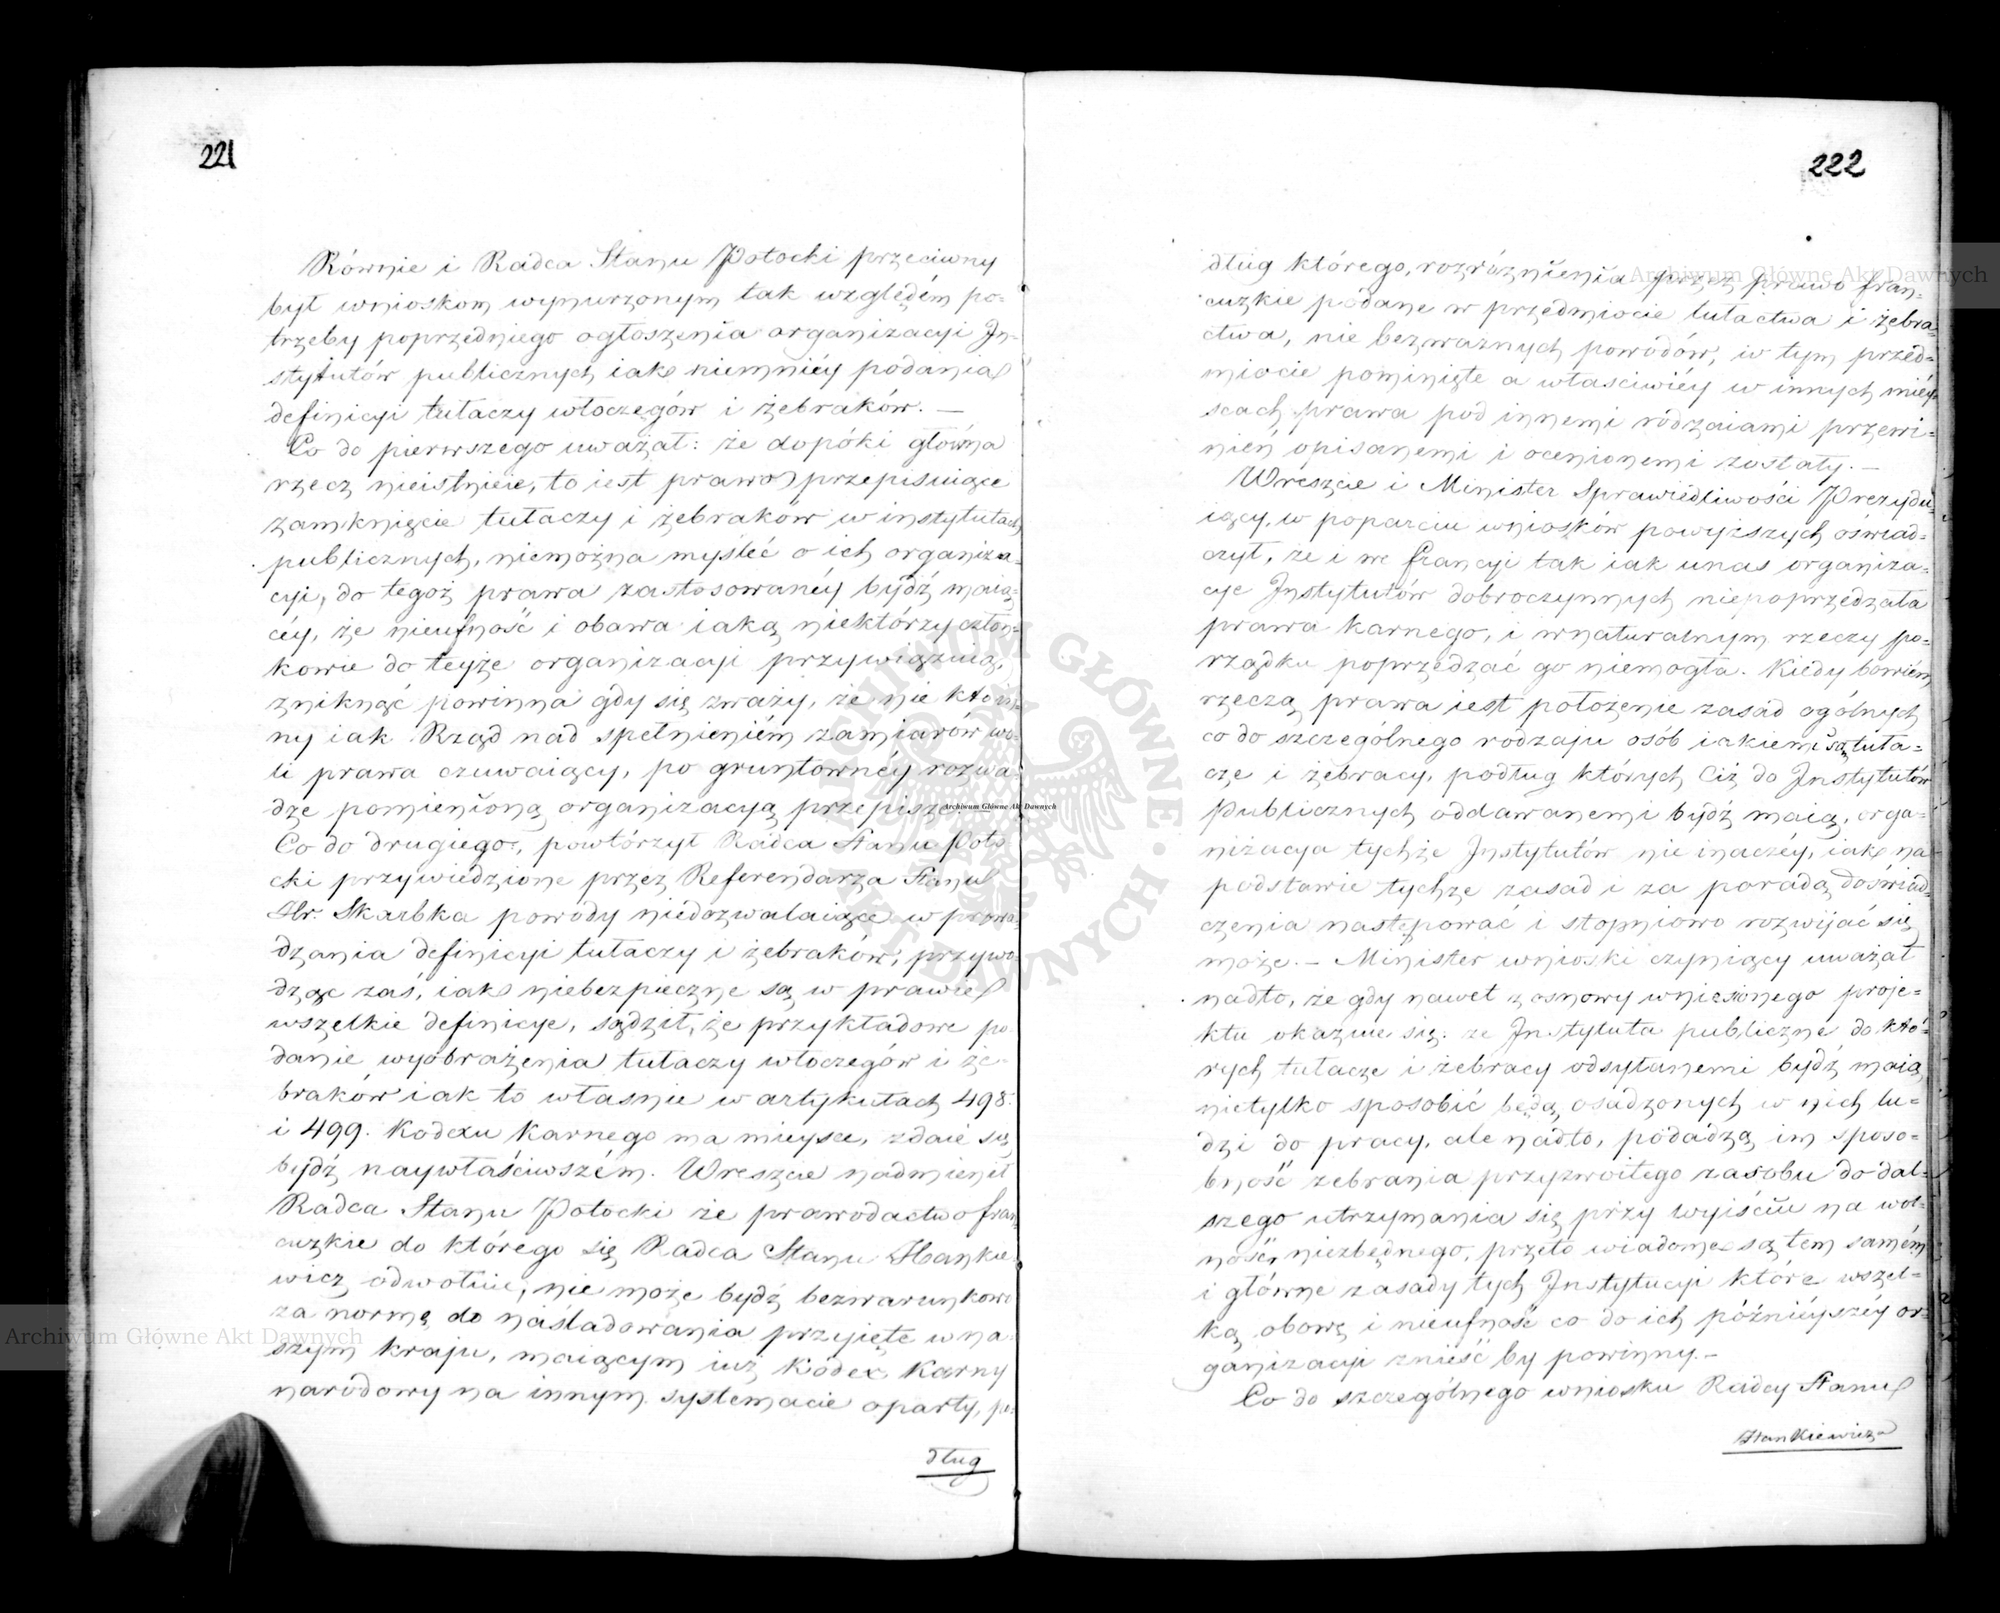 221
Równie i Radca Stanu Potocki przeciwny
był wnioskom wynurzonym tak względem po-
trzeby poprzedniego ogłoszenia organizacyi In-
stytutów publicznych iak niemniéy podania
definicyi tułaczy włoczęgów i żebraków. —
Co do pierwszego uważał: że dopóki główna
rzecz nieistnieie, to iest prawo przepisuiące
zamknięcie tułaczy i żebraków w instytutach
publicznych, niemożna myśleć o ich organiza-
cyi, do tegoż prawa zastosowanéy bydź maią-
céy, że nieufność i obawa iaką niektórzy człon-
kowie do teyże organizacyi przywięzuią,
zniknąć powinna gdy się zważy, że nie kto in-
ny iak Rząd nad spełnieniém zamiarów wo-
li prawa czuwaiący, po gruntownéy rozwa-
dze pomienioną organizacyą przepisze. —
Co do drugiego, powtórzył Radca Stanu Poto
cki przywiedzione przez Referendarza Stanu
Hr. Skarbka powody niedozwalaiące wprowa-
dzania definicyi tułaczy i żebraków; przywo-
dząc zaś, iak niebezpieczne są w prawie
wszelkie definicye, sądził, że przykładowe po
danie wyobrażenia tułaczy włoczęgów i że-
braków iak to własnie w artykułach 498.
i 499. Kodexu Karnego ma mieysce, zdaie się
bydź naywłaściwszém. Wreszcie nadmienił
Radca Stanu Potocki że prawodactwo fran
cuzkie do którego się Radca Stanu Hankie
wicz odwołuie, nie może bydź bezwarunkowo
za normę do naśladowania przyięte w na-
szym kraju, maiącym iuż Kodex Karny
narodowy na innym systemacie oparty, po-
dług
222
dług którego, rozróżnienia przez prawo fran-
cuzkie podane w przedmiocie tułactwa i żebra-
ctwa, nie bez ważnych powodów, w tym przed-
miocie pominięte a właściwiéy w innych miéy-
scach prawa pod innemi rodzaiami przewi-
nień opisanemi i ocenionemi zostały. —
Wreszcie i Minister Sprawiedliwości Prezydu-
iący, w poparciu wniosków powyższych oswiad-
czył, że i we francyi tak iak unas organiza-
cye Instytutów dobroczynnych niepoprzedzała
prawa karnego, i wnaturalnym rzeczy po-
rządku poprzedzać go niemogła. Kiedy bowiém
rzeczą prawa iest położenie zasad ogólnych
co do szczególnego rodzaju osób iakiemi są tuła-
cze i żebracy, podług których Ciż do Instytutów
Publicznych oddawanemi bydź maią, orga-
nizacya tychże Instytutów nie inaczéy, iak na
podstawie tychże zasad i za poradą doświad-
czenia następować i stopniowo rozwijać się
może. — Minister wnioski czyniący uważał
nadto, że gdy nawet z osnowy wniesionego proje-
ktu okazuie się że Instytuta publiczne do któ-
rych tułacze i żebracy odsyłanemi bydź maią
nietylko sposobić będą osadzonych w nich lu-
dzi do pracy, ale nadto, podadzą im sposo-
bność zebrania przyzwoitego zasobu do dal-
szego utrzymania się przy wyiściu na wol-
ność niezbędnego, przeto wiadome są tem samém
i główne zasady tych Instytucyi które wszel-
ką obawę i nieufność co do ich późniéyszéy or-
ganizacyi znieść by powinny. —
Co do szczególnego wniosku Radcy Stanu
Hankiewicza
Archiwum Główne Akt Dawnych
Archiwum Główne Akt Dawnych
Archiwum Główne Akt Dawnych
ARCHIWUM GŁÓWNE • AKT DAWNYCH •